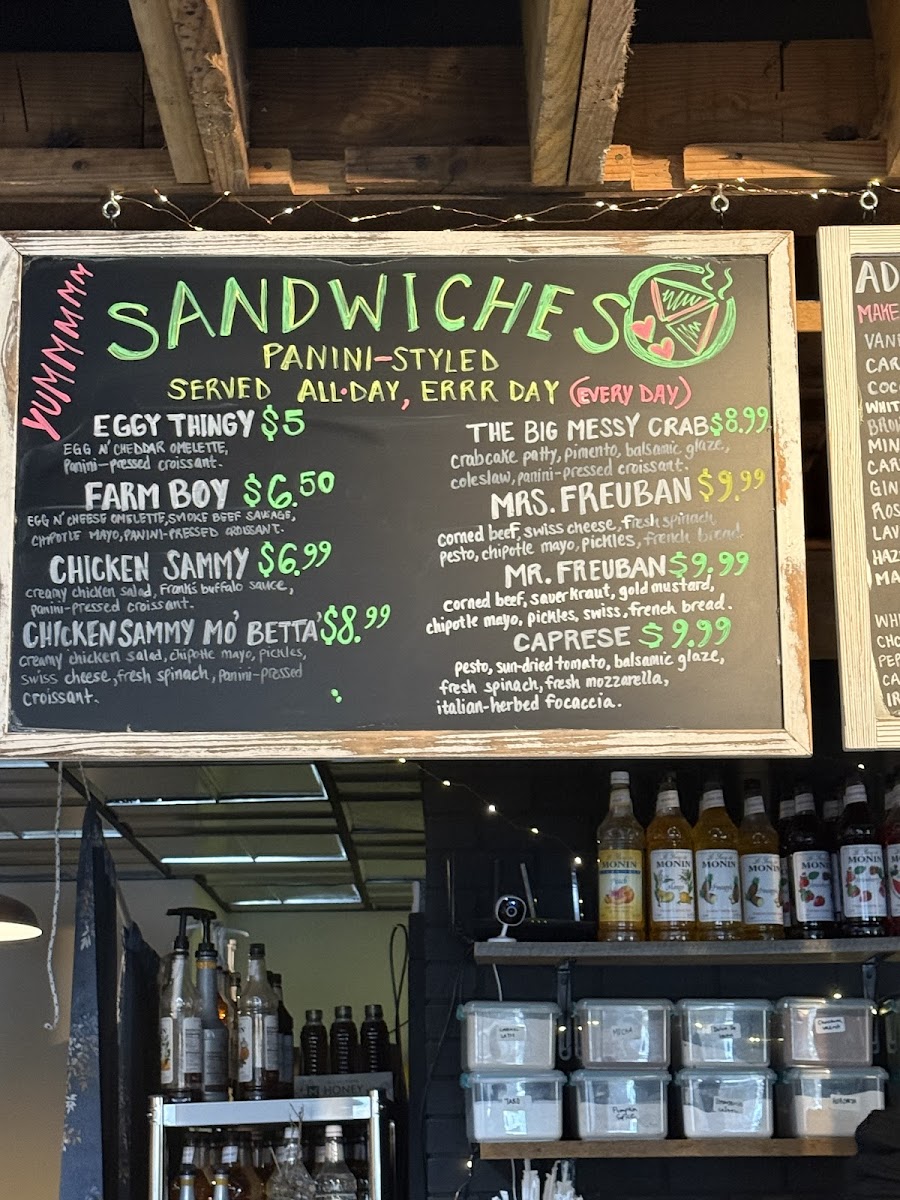 YUMMYMMM
SANDWICHES
PANINI-STYLED
SERVED ALL·DAY, ERRR DAY (EVERY DAY)
EGGY THINGY $5
EGG N' CHEDDAR OMELETTE,
Panini-pressed croissant.
FARM BOY $6.50
EGG N' CHEESE OMELETTE, SMOKE BEEF SAUSAGE,
CHIPOTLE MAYO, PANINI-PRESSED CROISSANT.
CHICKEN SAMMY $6.99
creamy chicken salad, Frank's buffalo sauce,
panini-pressed croissant.
CHICKEN SAMMY MO' BETTA' $8.99
creamy chicken salad, chipotle mayo, pickles,
swiss cheese, fresh spinach, panini-pressed
croissant.
THE BIG MESSY CRAB $8.99
crabcake patty, pimento, balsamic glaze,
coleslaw, panini-pressed croissant.
MRS. FREUBAN $9.99
corned beef, swiss cheese, fresh spinach,
pesto, chipotle mayo, pickles, french bread.
MR. FREUBAN $9.99
corned beef, sauerkraut, gold mustard,
chipotle mayo, pickles, swiss, french bread.
CAPRESE $9.99
pesto, sun-dried tomato, balsamic glaze,
fresh spinach, fresh mozzarella,
italian-herbed focaccia.
AD
MAKE
VAN
CAR
COC
WHIT
BROW
MIN
CAR
GIN
ROS
LAV
HAZ
MA
WH
CHO
PEP
CA
IR
MONIN
MONIN
MONIN
MONIN
MONIN
MONIN
HONEY
MOCHA
TARO
Pumpkin
Spice